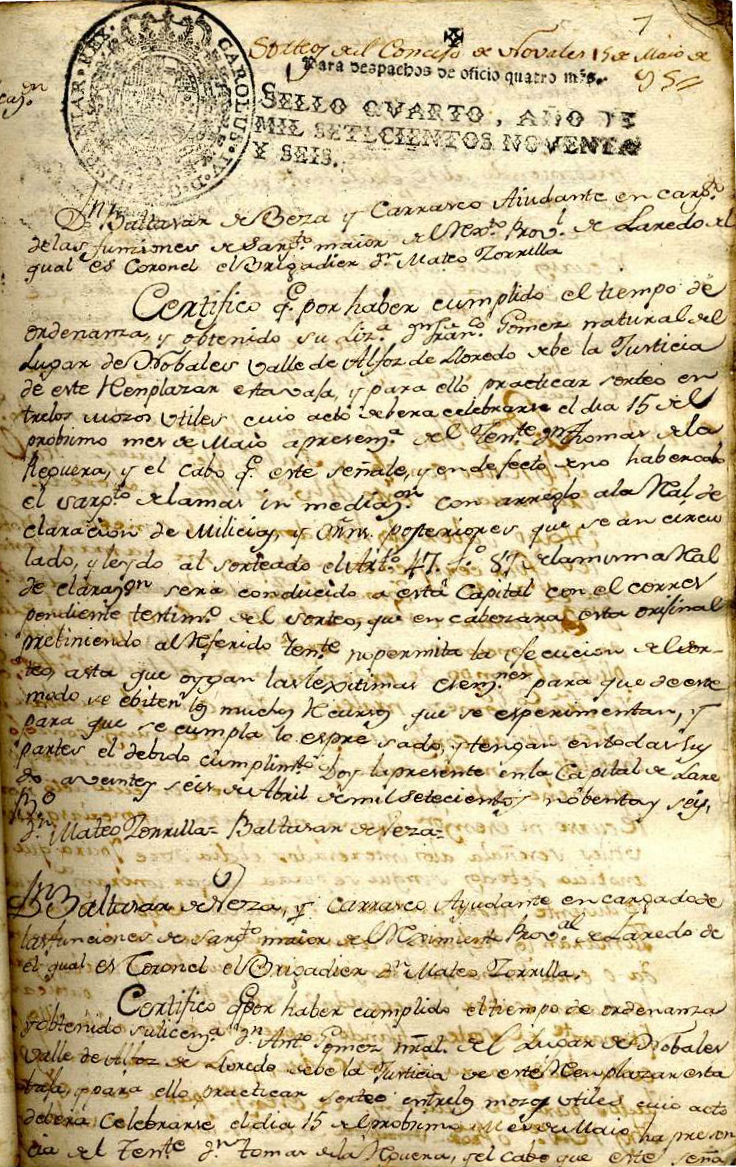 7
Sorteos del Concejo de Novales 15 de Maio de
Para despachos de oficio quatro mrs.
95
SELLO QVARTO, AÑO DE
MIL SETECIENTOS NOVENTA
Y SEIS.
CAROLUS IV D G HISPANIAR REX
Dn. Baltasar de Beza y Carrasco Aiudante en carg.do
de las funciones de Sargto. maior del Rexto. Provl. de Laredo del
qual es Coronel el Brigadier Dn. Mateo Zorrilla
Certifico q.e por haber cumplido el tiempo de
ordenanza, y obtenido su Liza. dn. Franco. Gomez natural del
Lugar de Nobales Valle de Alfoz de Lloredo debe la Justicia
de este Remplazar esta vaja, y para ello practicar sorteo en
trelos mozos utiles cuio acto debera celebrarse el dia 15 del
probsimo mes de Maio a presenza. del Tente. dn. Thomas de la
Reguera, y el cabo q.e este señale, y en defecto de no haber cabo
el sargto. de la mas in mediazon. con arreglo a la Real de
claracion de Milicias, y Orns. posteriores que se an circu
lado, y leydo al sorteado el Arto. 47. fo. 87 de la misma Real
de clarazon. sera conducido a esta Capital con el corres
pendiente testimo. del sorteo, que en cabezara esta orijinal
pretiniendo al Referido Tente. no permita la ejecucion del sor-
teo, asta que oygan las lexitimas exempnes. para que de este
modo se ebiten los muchos Recursos que se esperimentan, y
para que se cumpla lo espresado, y tengan en todas sus
partes el debido cumplimto. doy la presente en la Capital de Lare
do a veinte y seis de Abril de mil setecientos nobenta y seys,
Vo. Bo.
Dn. Mateo Zorrilla= Baltasar de Veza=
Dn. Baltasar de Veza, y Carrasco Ayudante en cargado de
las funciones de Sargto. maior del Reximiento Proval. de Laredo de
el qual es Coronel el Brigadier Dn. Mateo Zorrilla,
Certifico q.e por haber cumplido el tiempo de ordenanza
y obtenido su licema. dn. Anto. Gomez nral. del Lugar de Nobales
Valle de Alfoz de Lloredo debe la Justicia de este Remplazar esta
baja, y para ello practicar sorteo entrelos mozos utiles cuio acto
debera Celebrarse el dia 15 del probsimo Mes de Maio, ha presen
cia del Tente. dn. Tomas de la Reguera, y el cabo que este seña